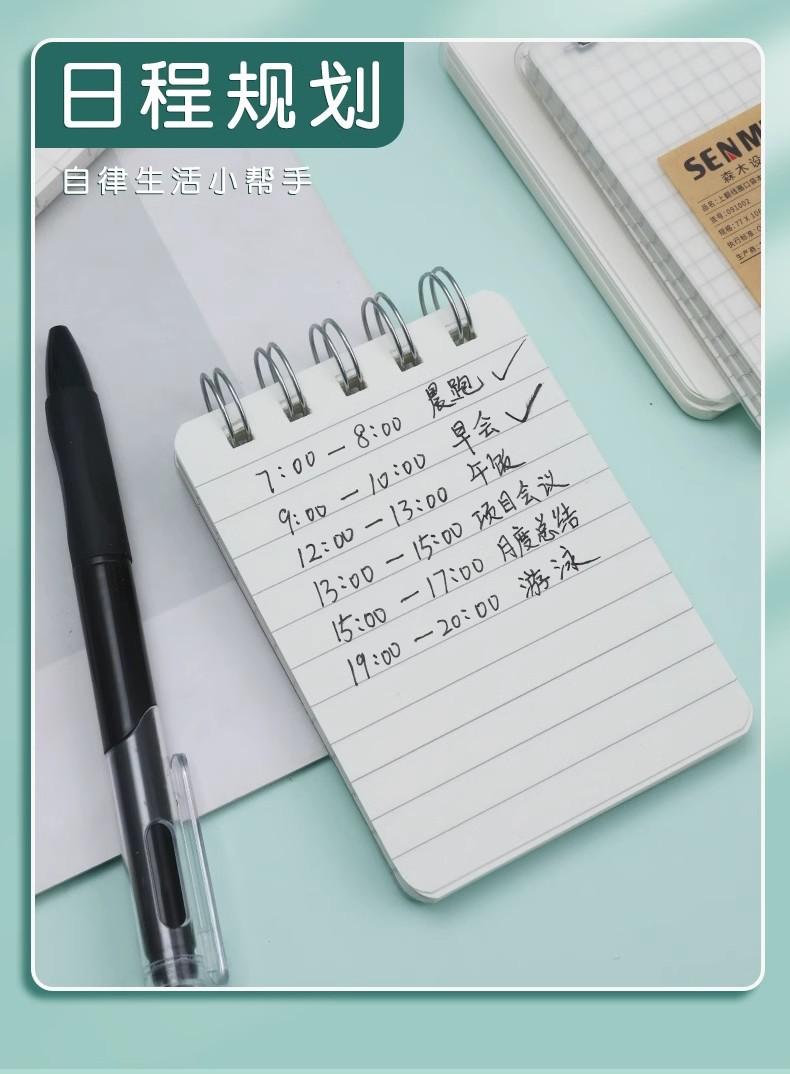 日程规划
自律生活小帮手
SENM
森木设
品名:上翻线圈口袋本
货号:091002
规格:77 X 106
执行标准:Q
生产商:
7:00 — 8:00 晨跑 ✓
9:00 — 10:00 早会 ✓
12:00 — 13:00 午饭
13:00 — 15:00 项目会议
15:00 — 17:00 月度总结
19:00 — 20:00 游泳